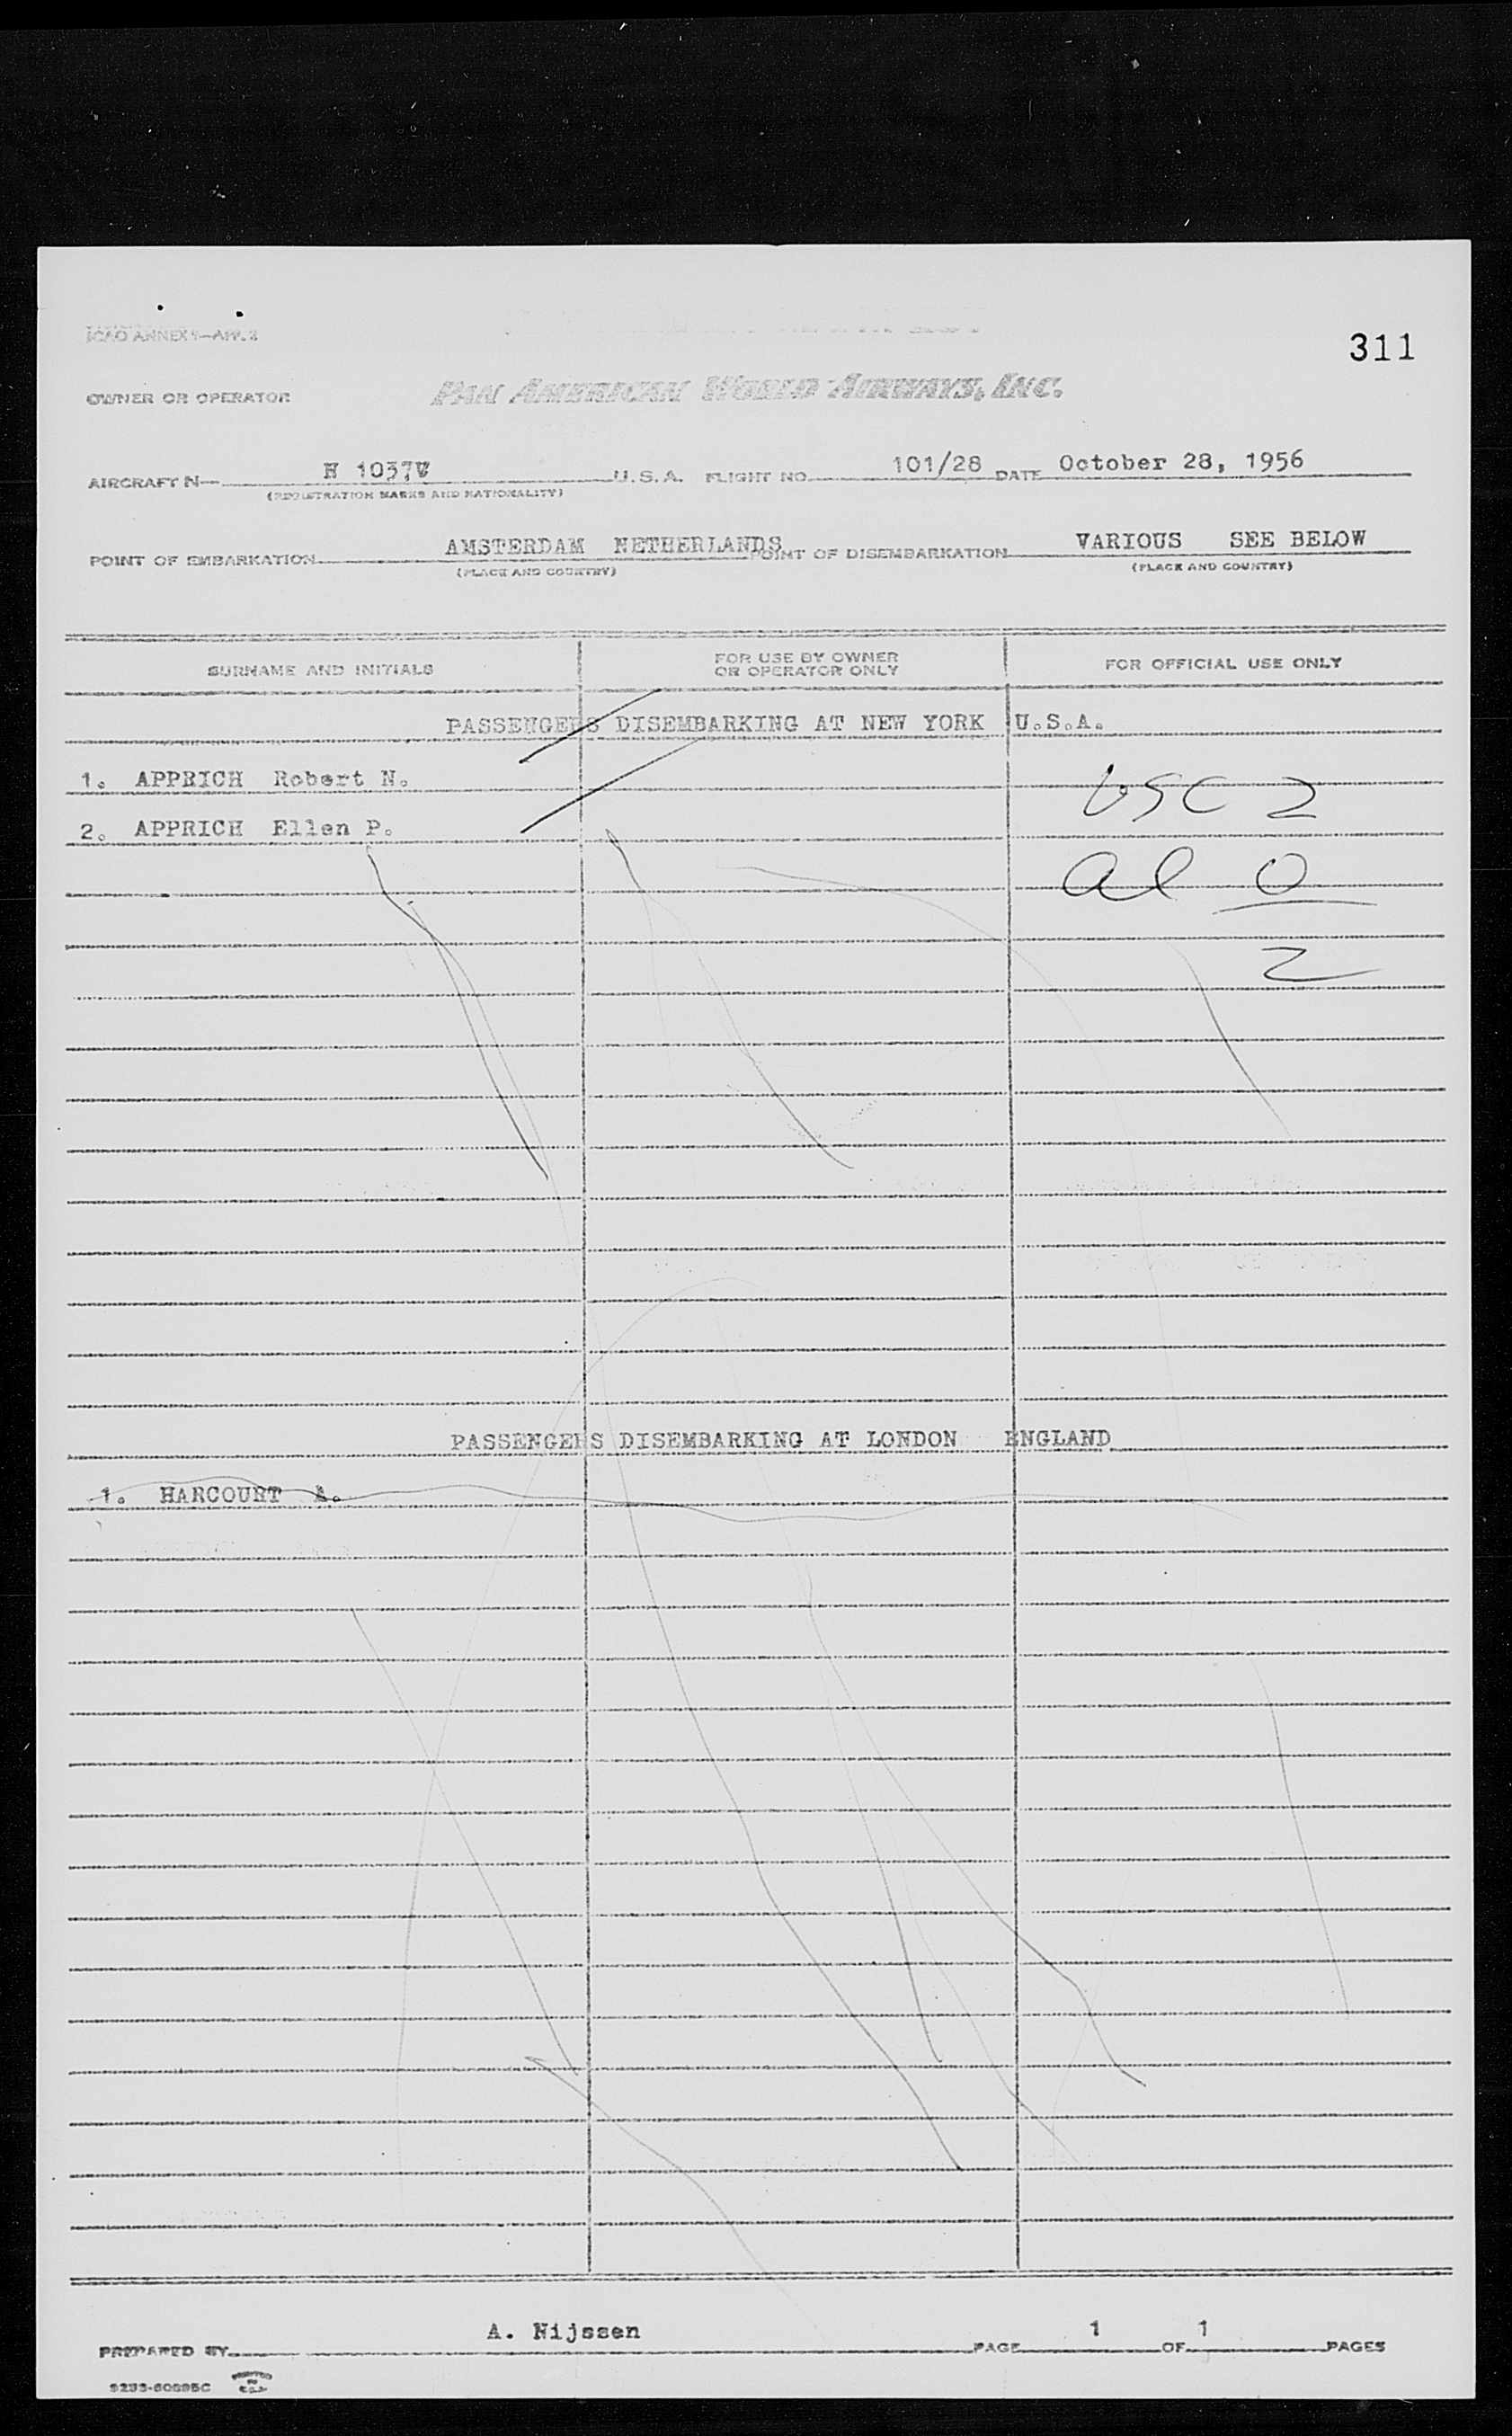 ICAO ANNEX 9—APP. 2
311
OWNER OR OPERATOR PAN AMERICAN WORLD AIRWAYS, INC.
AIRCRAFT N— N 1037V U.S.A. FLIGHT NO. 101/28 DATE October 28, 1956
(REGISTRATION MARKS AND NATIONALITY)
POINT OF EMBARKATION AMSTERDAM NETHERLANDS POINT OF DISEMBARKATION VARIOUS SEE BELOW
(PLACE AND COUNTRY) (PLACE AND COUNTRY)
SURNAME AND INITIALS FOR USE BY OWNER OR OPERATOR ONLY FOR OFFICIAL USE ONLY
PASSENGERS DISEMBARKING AT NEW YORK U.S.A.
1. APPRICH Robert N.
USC 2
2. APPRICH Ellen P.
al 0
2
PASSENGERS DISEMBARKING AT LONDON ENGLAND
1. HARCOURT A.
PREPARED BY A. Nijssen PAGE 1 OF 1 PAGES
PRINTED IN U.S.A.